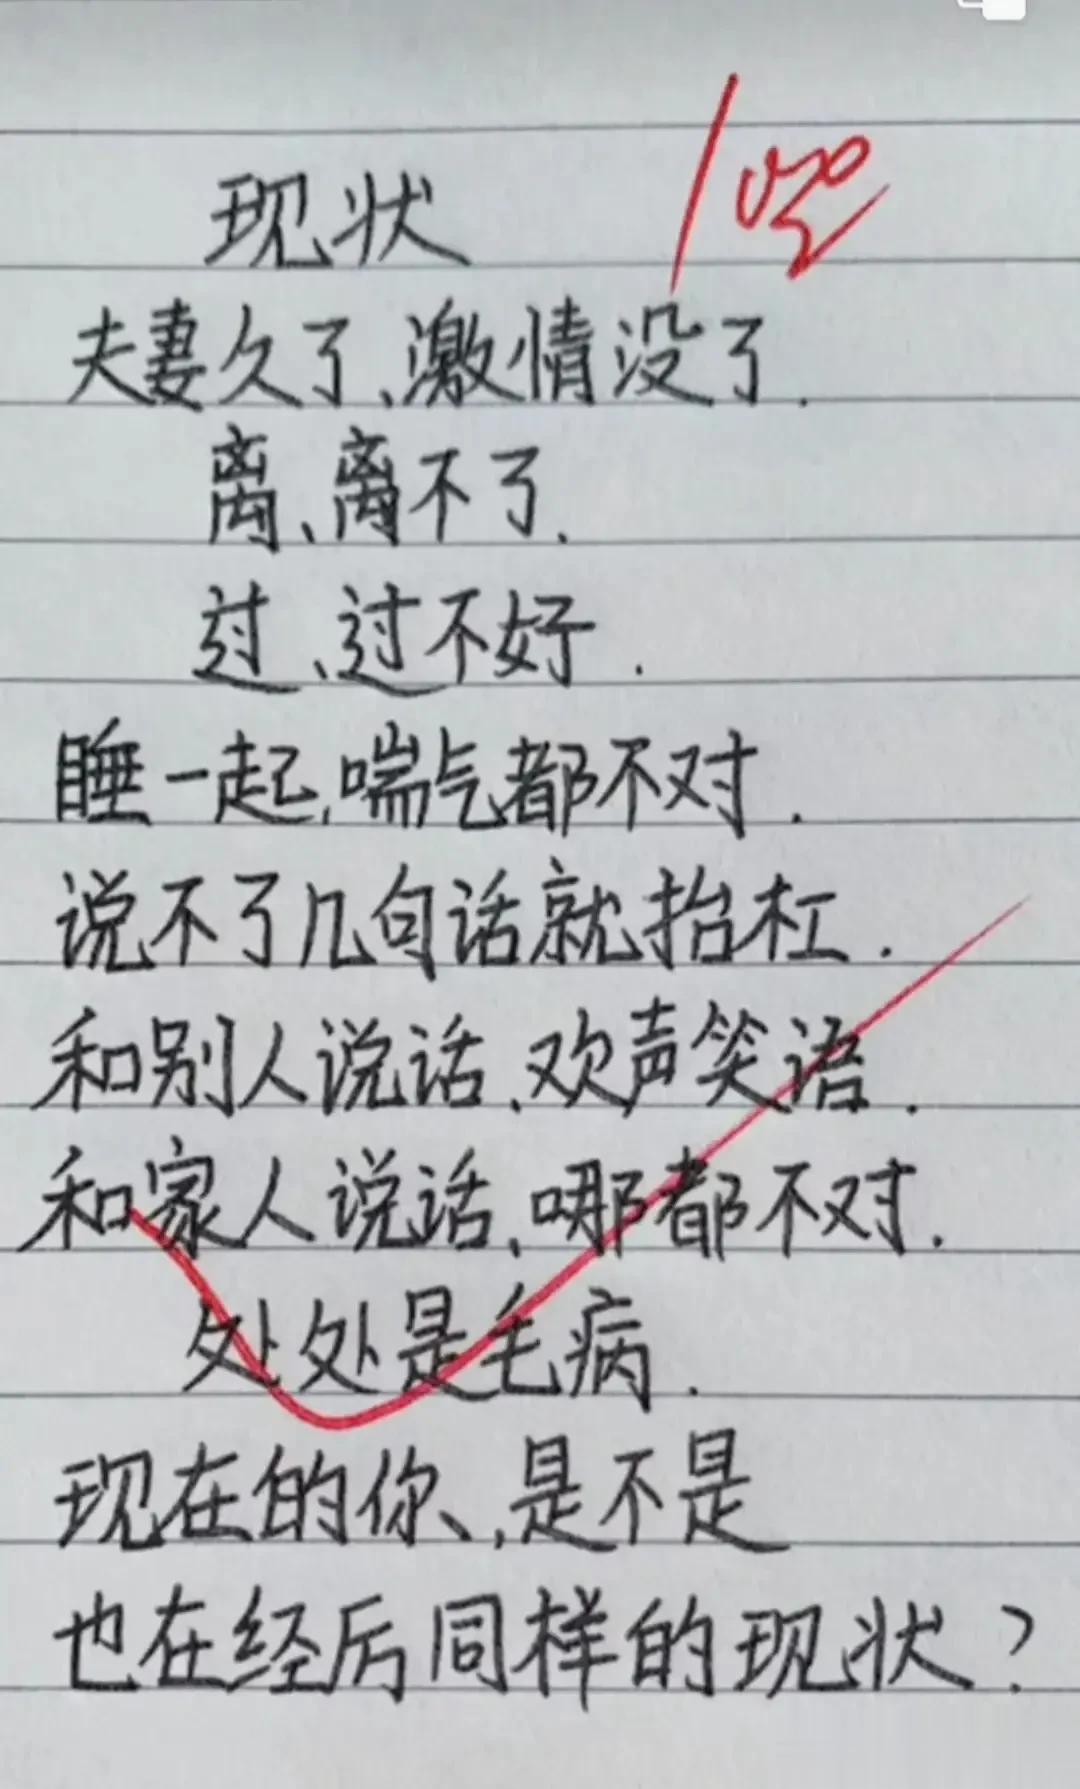 现状
100
夫妻久了、激情没了.
离、离不了.
过、过不好.
睡一起,喘气都不对.
说不了几句话就抬杠.
和别人说话、欢声笑语.
和家人说话、哪都不对.
处处是毛病.
现在的你、,是不是
也在经历同样的现状?